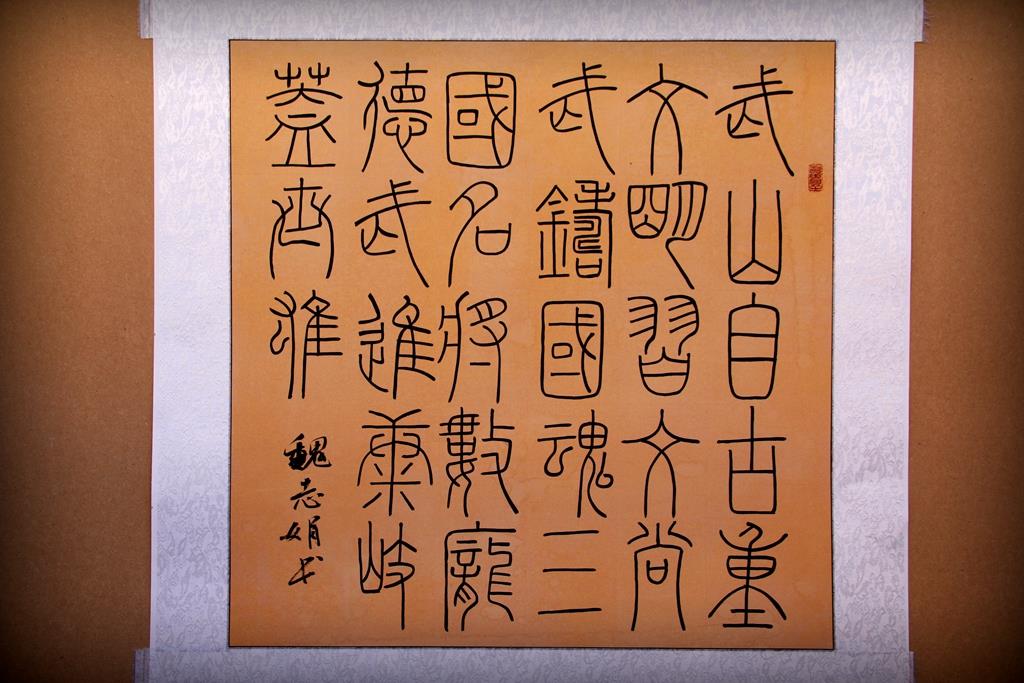 武山自古重
文明習文尚
武鑄國魂三
國名將數龐
德武進康岐
蓋齊雄
魏志娟书